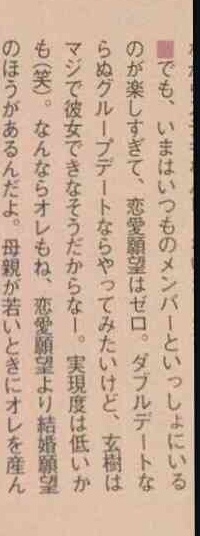 でも、いまはいつものメンバーといっしょにいる
のが楽しすぎて、恋愛願望はゼロ。ダブルデートな
らぬグループデートならやってみたいけど、玄樹は
マジで彼女できなそうだからなー。実現度は低いか
も(笑)。なんならオレもね、恋愛願望より結婚願望
のほうがあるんだよ。母親が若いときにオレを産ん